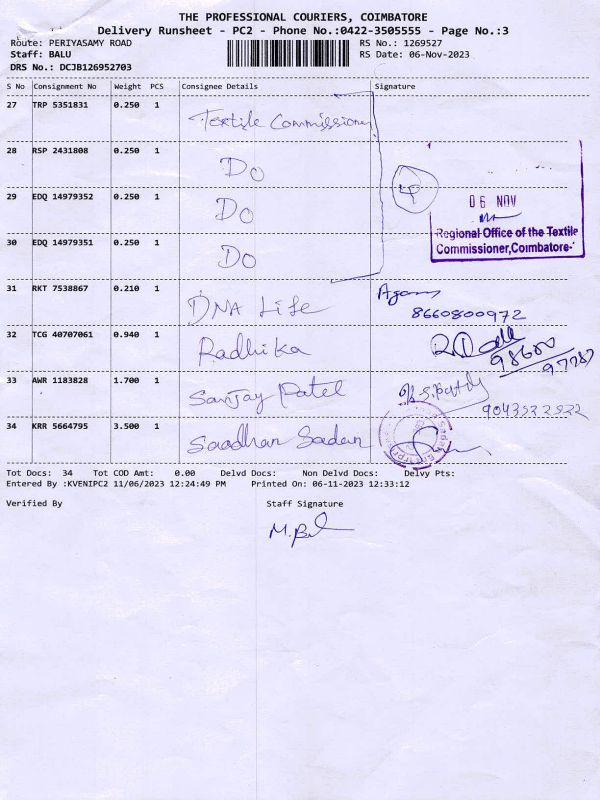 THE PROFESSIONAL COURIERS, COIMBATORE
Delivery Runsheet - PC2 - Phone No.:0422-3505555 - Page No.:3
Route: PERIYASAMY ROAD RS No.: 1269527
Staff: BALU RS Date: 06-Nov-2023
DRS No.: DCJB126952703
S No Consignment No Weight PCS Consignee Details Signature
27 TRP 5351831 0.250 1 Textile Commissioner
28 RSP 2431808 0.250 1 Do
29 EDQ 14979352 0.250 1 Do
06 NOV
Regional Office of the Textile
Commissioner,Coimbatore-
30 EDQ 14979351 0.250 1 Do
31 RKT 7538867 0.210 1 DNA Life
8660800972
32 TCG 40707061 0.940 1 Radhika
33 AWR 1183828 1.700 1 Sanjay Patel
34 KRR 5664795 3.500 1 Saadhan Sadan
Tot Docs: 34 Tot COD Amt: 0.00 Delvd Docs: Non Delvd Docs: Delvy Pts:
Entered By :KVENIPC2 11/06/2023 12:24:49 PM Printed On: 06-11-2023 12:33:12
Verified By Staff Signature